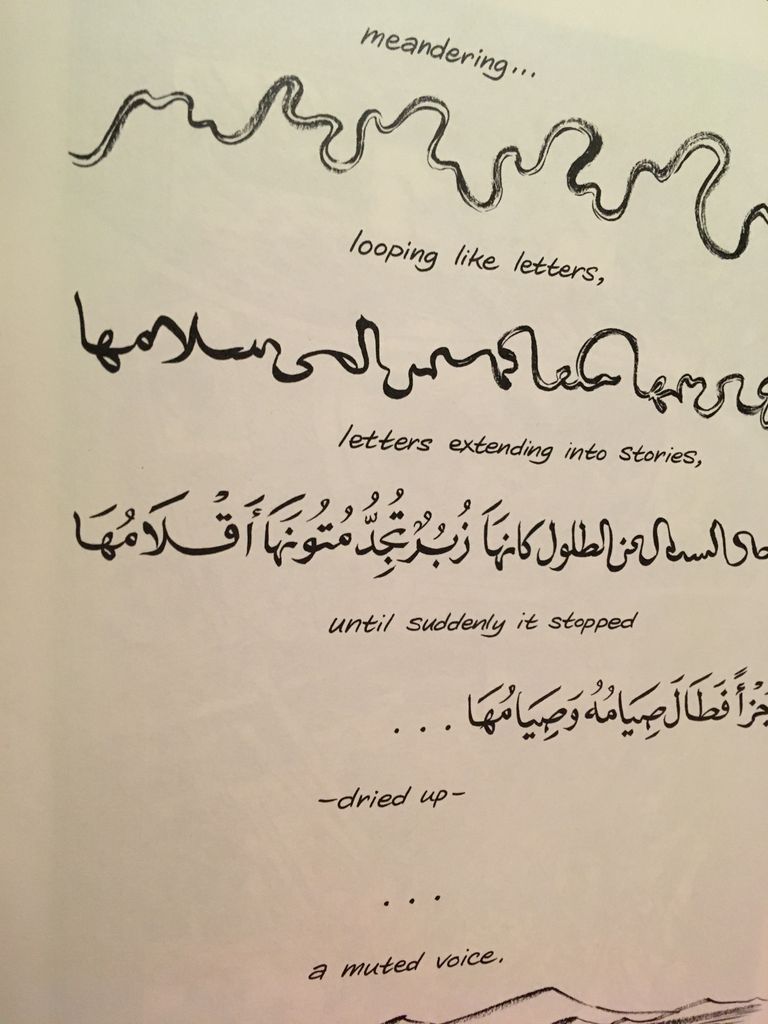 meandering...
looping like letters,
سلامها
letters extending into stories,
عن الطلول كانهَا زُبُرٌ تُجِدُّ مُتُونَهَا أَقْلَامُهَا
until suddenly it stopped
فَطَالَ صِيَامُهُ وَصِيَامُهَا ...
-dried up-
...
a muted voice.